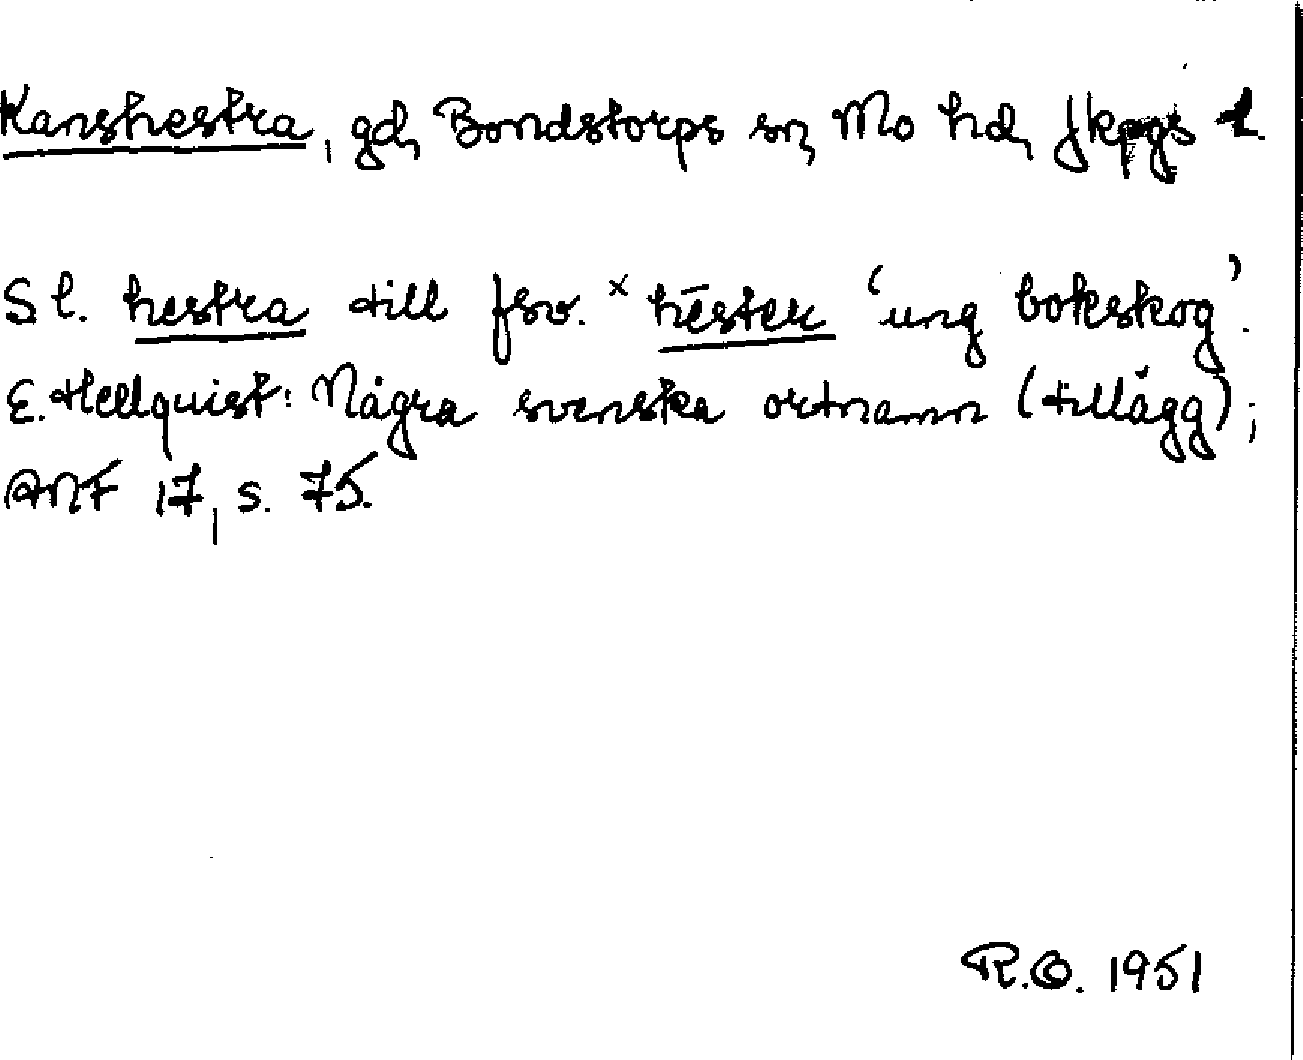 Kanshestra, gd, Bondstorps sn, Mo hd, Jkpgs l.
Sl. hestra till fsv. ˣhēster ‘ung bokskog’.
E. Hellquist: Några svenska ortnamn (tillägg);
ANF 17, s. 75.
R.O. 1951